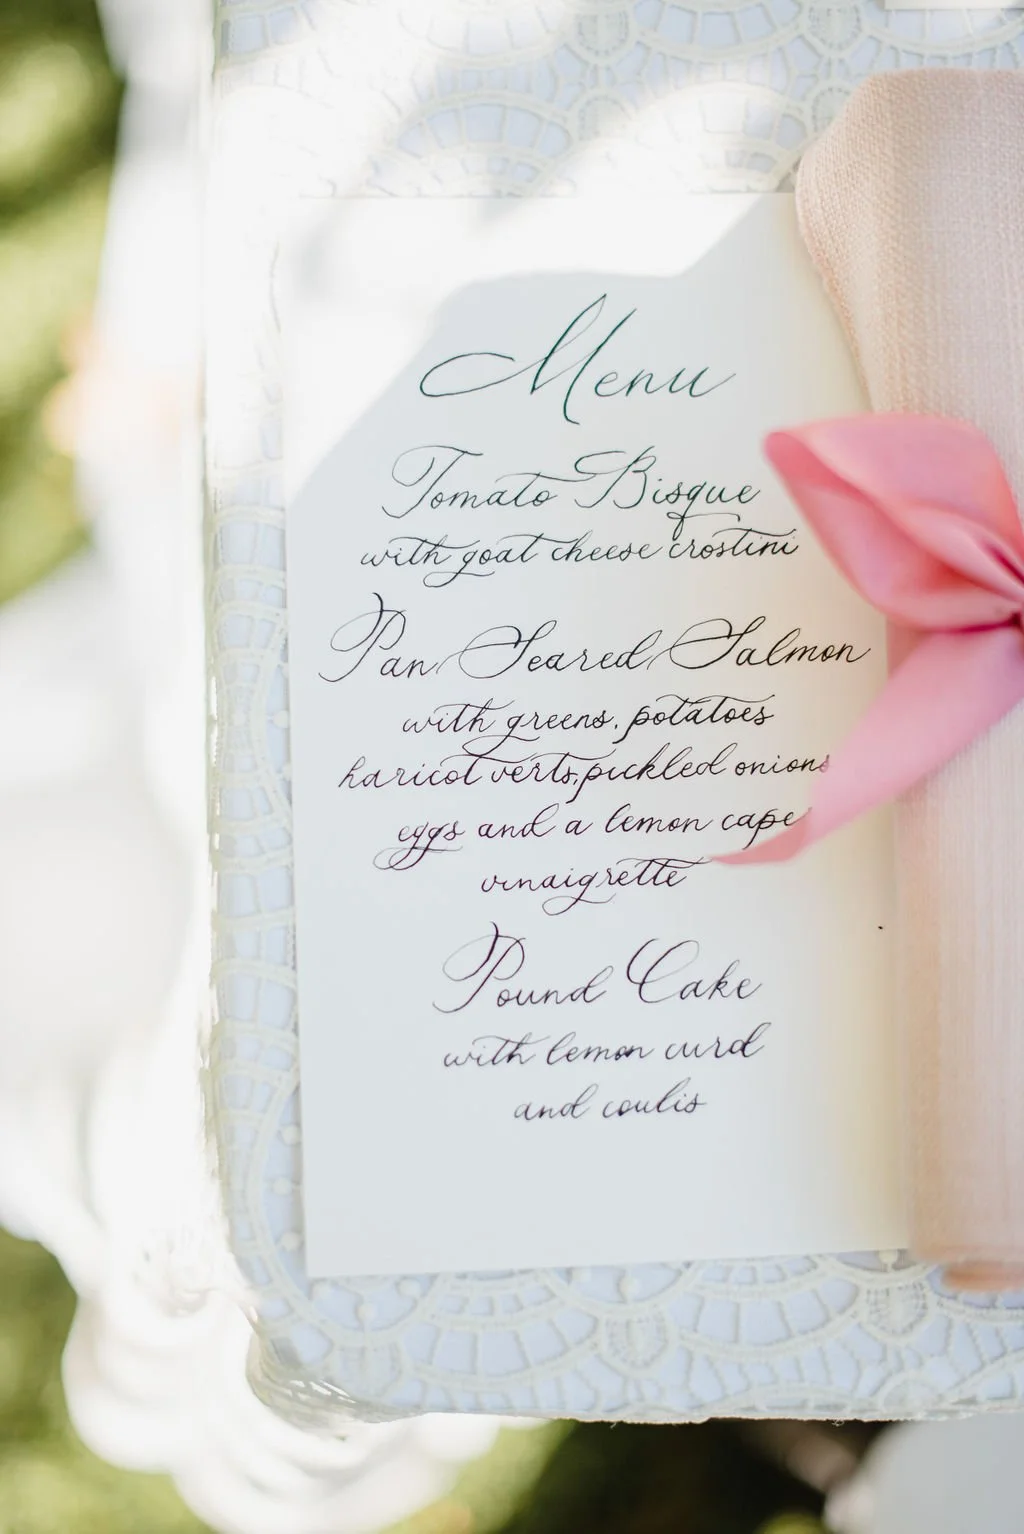 Menu
Tomato Bisque
with goat cheese crostini
Pan Seared Salmon
with greens, potatoes
haricot verts, pickled onions
eggs and a lemon cape
vinaigrette
Pound Cake
with lemon curd
and coulis